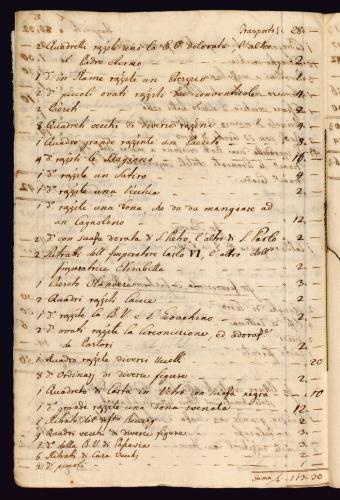 Trasporto L. 28 -
2 Quadretti rapp.te uno la B.V. dolorata l'altro
il Padre Eterno 2 -
1 d.º in Rame rapp.te un 1 -
2 d.i piccoli ovati rapp.ti due 4 -
2 Paeseti 2 -
8 Quadreti vecchi di diverse 4 -
1 Quadro grande rapp.te un Paeseto 8 -
4 d.i rapp.ti le 16 -
1 d.º rapp.te un Satiro 4 -
1 d.º rapp.te una Vecchia 2 -
1 d.º rapp.te una dona che da da mangiare ad
un Cagnolino 12 -
2 d.i con suasa dorata di S. Pietro, l'altro di S. Paolo 2 -
2 Ritrati dell'Imperatore Carlo VI, l'altro dell'
Imperatrice Elisabetta 2 -
1 Paeseto Olandese 3 -
2 Quadri rapp.ti Caccie 2 -
1 d.º rapp.te la B.V. e S. Zoachino 2 -
2 d.i ovati rapp.ti la Circoncisione, ed adoraz.e
de Pastori 2 -
1 Quadro rapp.te diversi Uccelli - 20
8 d.i Ordinarj di diverse figure 2 -
1 Quadreto di Carta in Vetro con suasa negra - 10
1 d.º grande rapp.te una dona 12 -
1 Ritrato del 2 -
9 Quadri vecchi di diverse figure 3 -
1 d.º della B.V. di 1 -
6 Ritrati di Casa 2 -
2 d.i piccoli - -
Suma L. 119-30